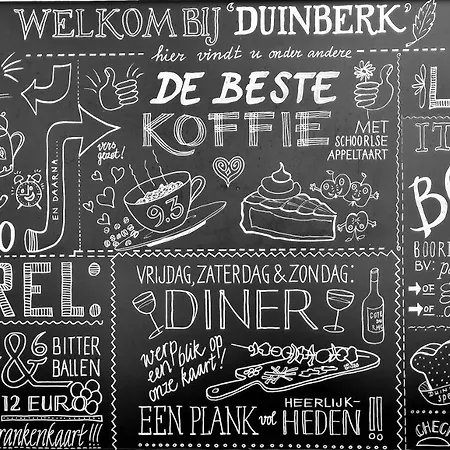 WELKOM BIJ 'DUINBERK'
hier vindt u onder andere
DE BESTE
KOFFIE
MET
SCHOORLSE
APPELTAART
vers
gezet!
9.3
EN DAARNA....
REL.
& 6 BITTER
BALLEN
12 EURO
rankenkaart!!!
VRIJDAG, ZATERDAG & ZONDAG:
DINER
werp
een blik op
onze kaart!
EEN PLANK vol HEERLIJK-
HEDEN!!
IT
BO
BOORD
BV: p
OF
OF
CHECK